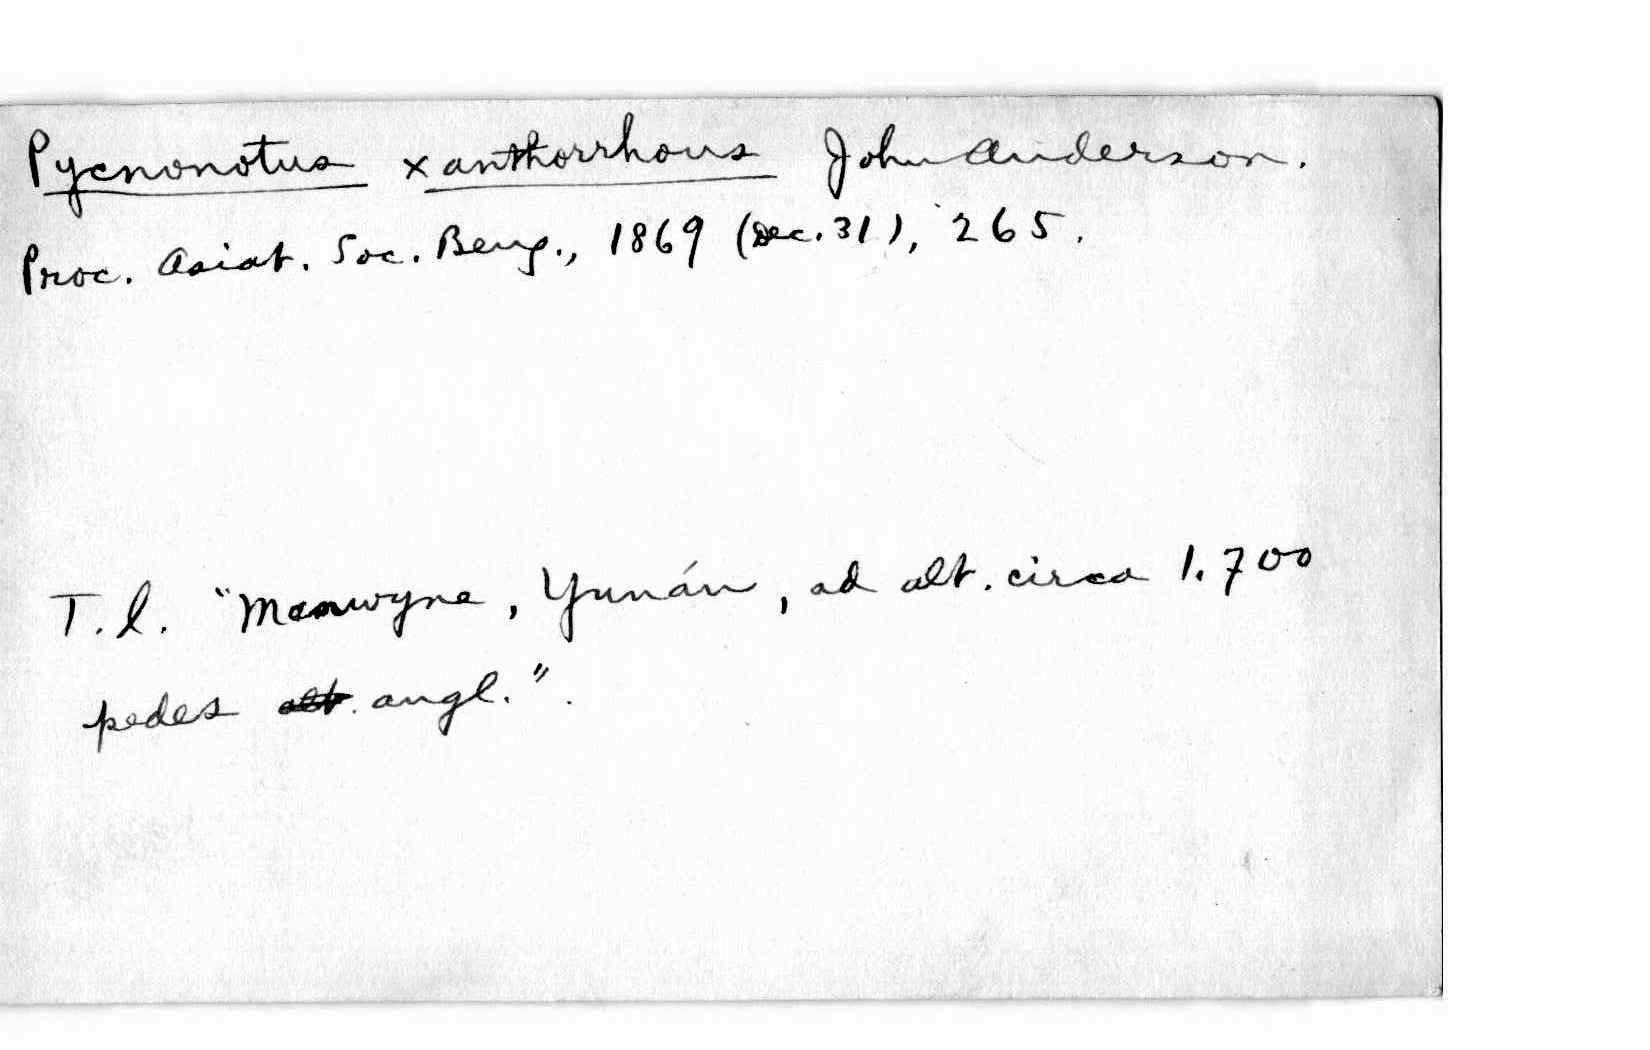 Pycnonotus xanthorrhous John Anderson.
Proc. Asiat. Soc. Beng., 1869 (Dec. 31), 265.
T.l. "Manwyne, Yunán, ad alt. circa 1.700
pedes alt. angl.".